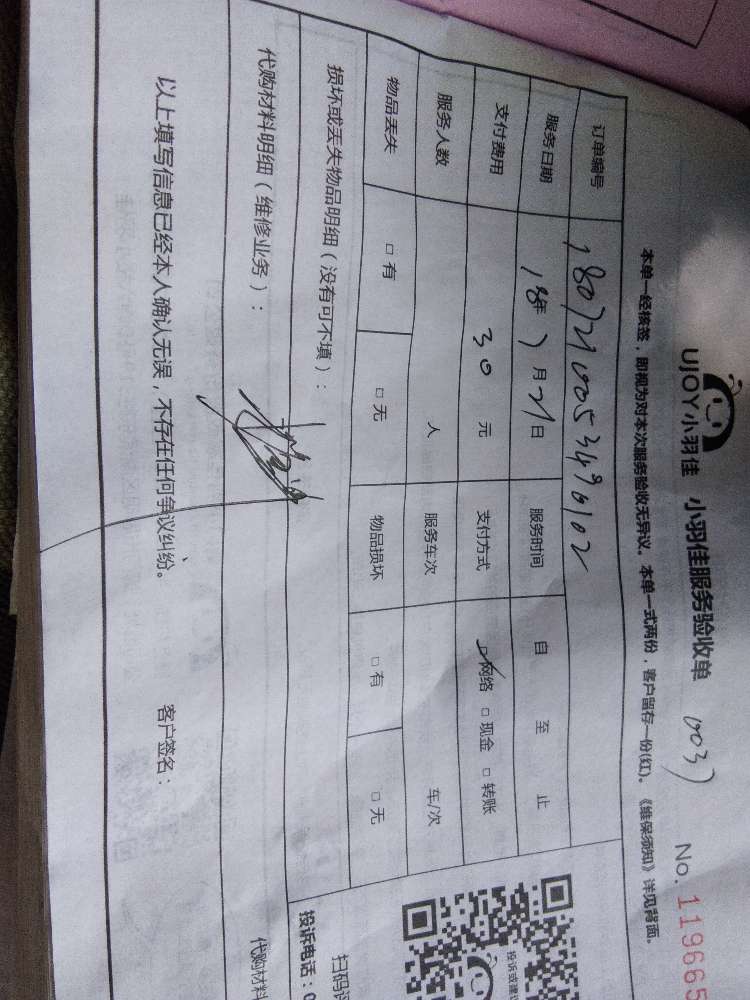 UJOY小羽佳 小羽佳服务验收单
No.119665
本单一经核签，即视为对本次服务验收无异议。本单一式两份，客户留存一份(红)。《维保须知》详见背面。
订单编号
服务日期 18年7月21日 服务时间 自 至 止
支付费用 30 元 支付方式 ☑网络 □现金 □转账
服务人数 人 服务车次 车/次
物品丢失 □有 □无 物品损坏 □有 □无
损坏或丢失物品明细（没有可不填）：
代购材料明细（维修业务）： 代购材料
以上填写信息已经本人确认无误，不存在任何争议纠纷。 客户签名：
投诉或建议
扫码
投诉电话：0